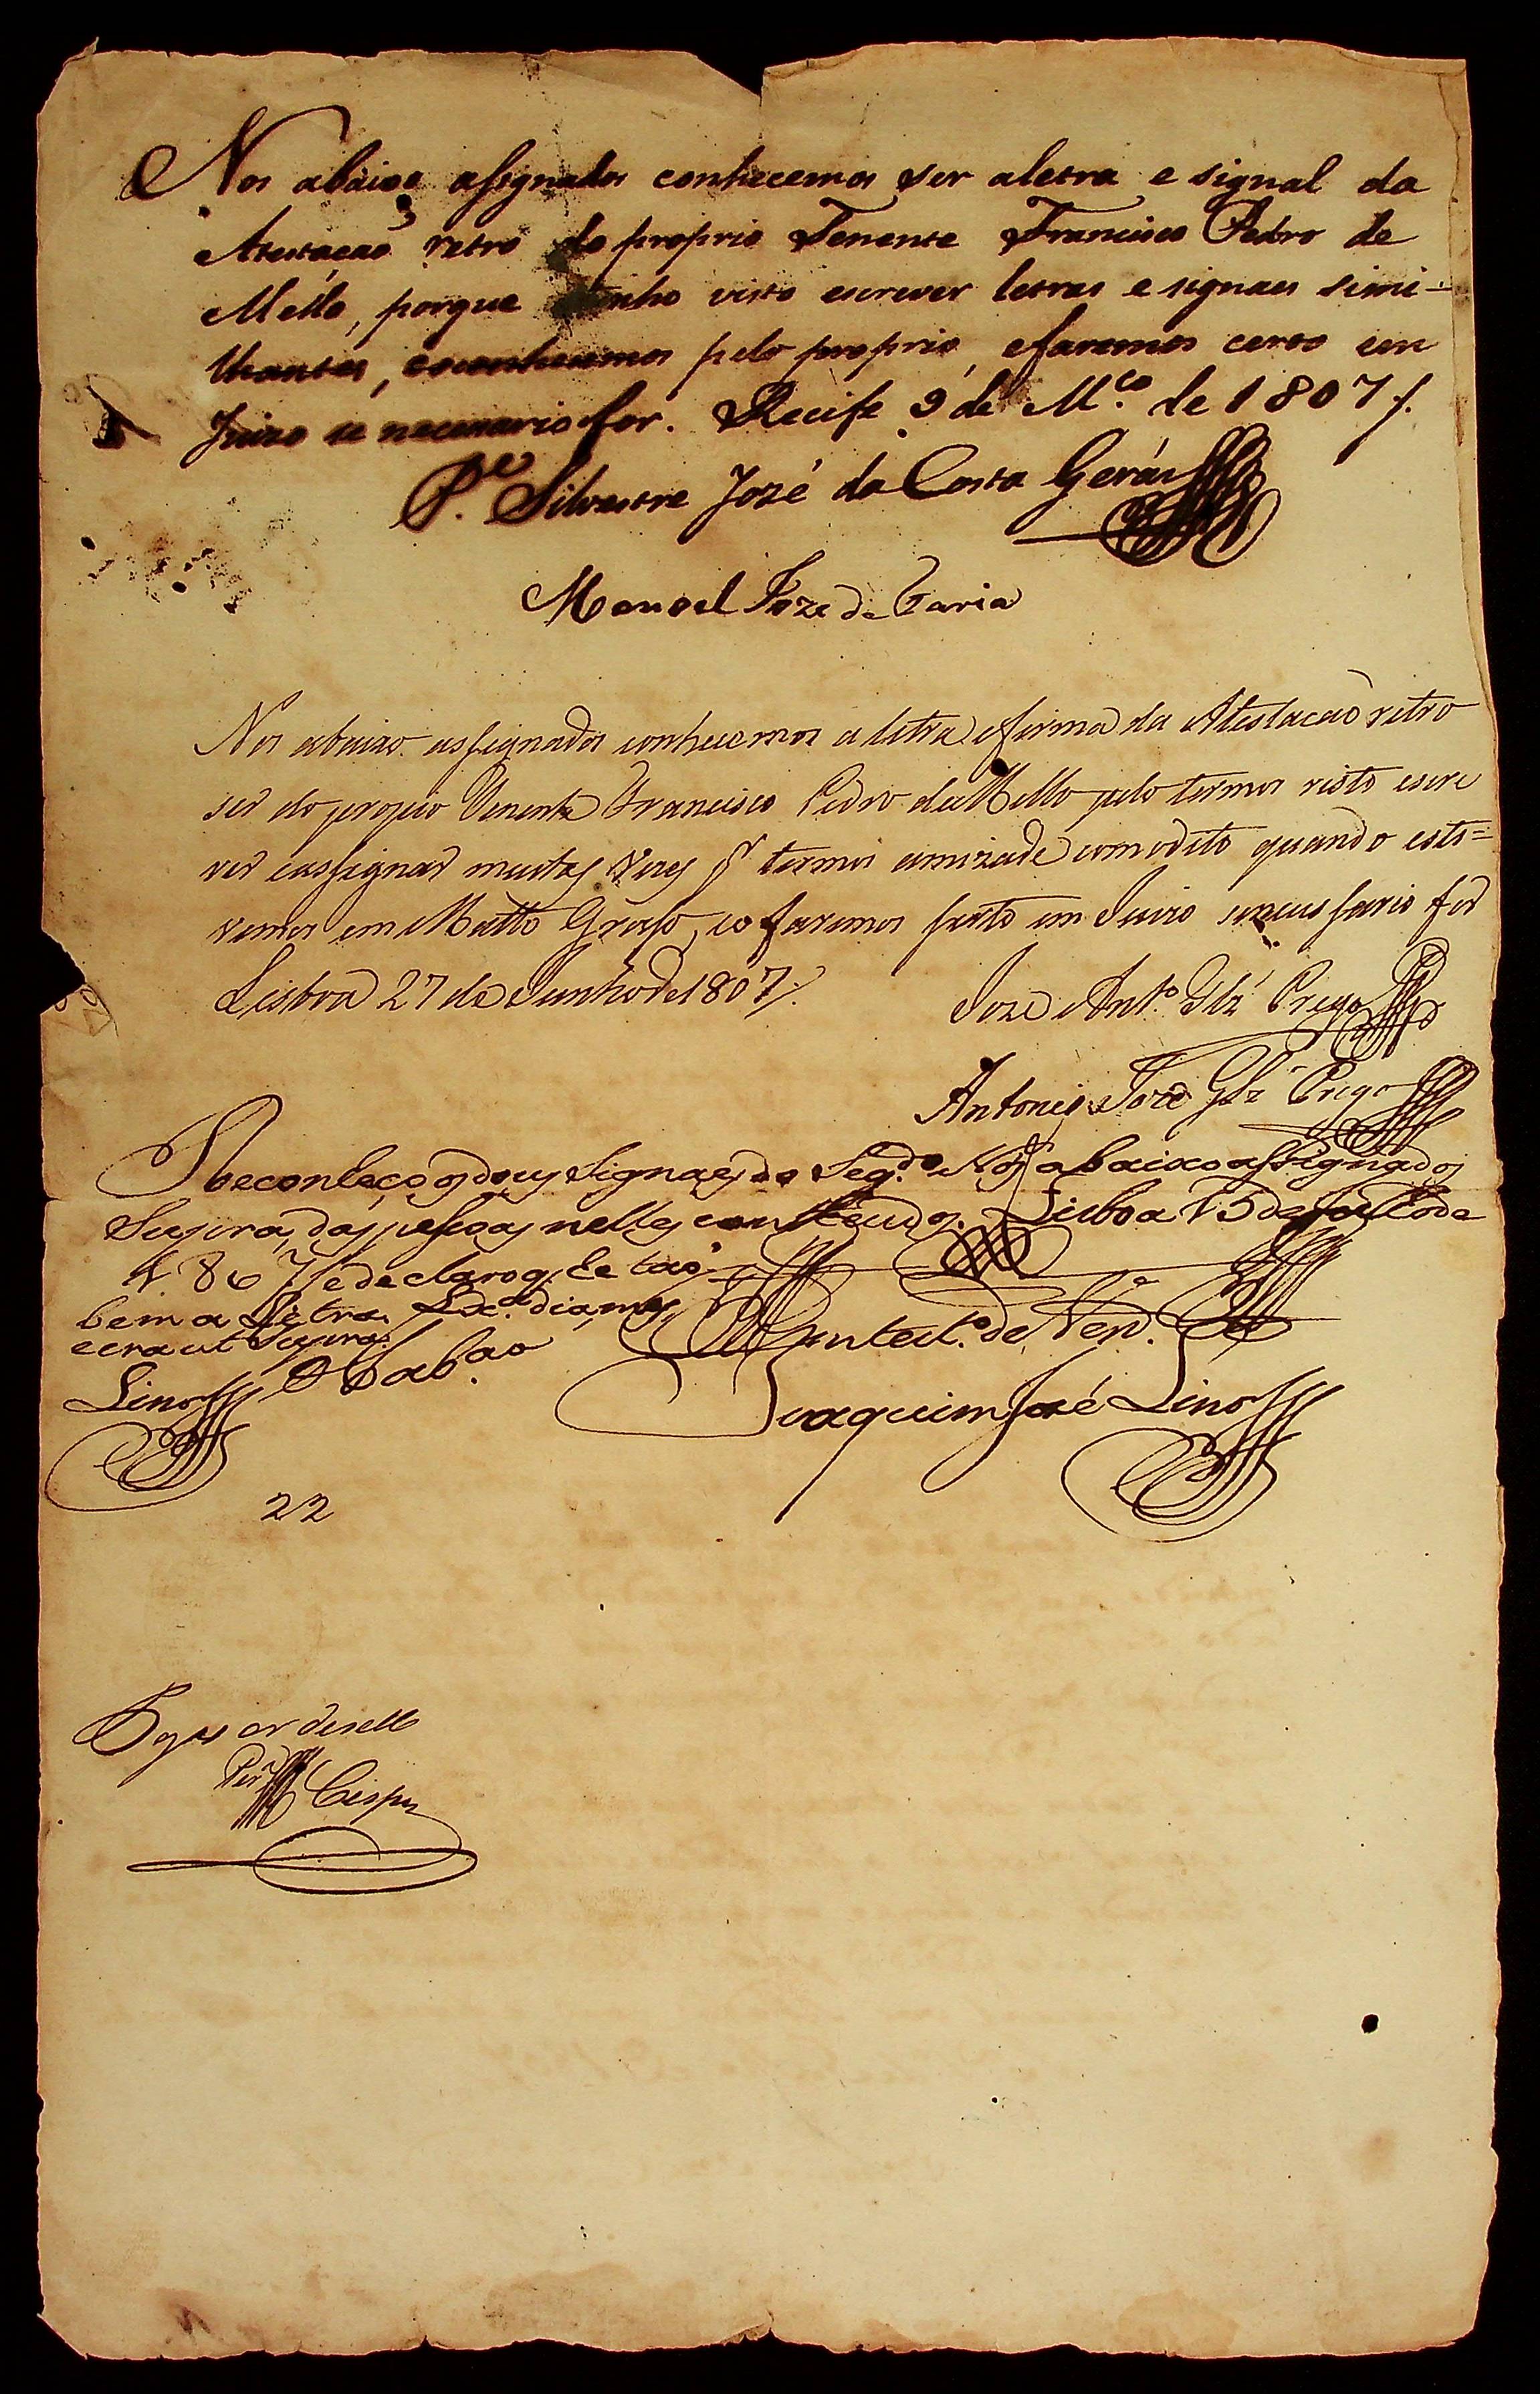 Nos abaixo assignados conhecemos ser aletra e signal da
Atestacaõ retro do proprio Tenente Francisco Pedro de
Mello, porque tenho visto escrever letras e signaes simi-
lhantes, econhecemos pelo proprio, efaremos certo em
Juizo se necessario for. Recife 9 de M.ço de 1807
P.e Silvestre Jozé da Costa
Manoel Joze de Faria
Nos abaixo assignados conhecemos a letra e firma da Atestacaõ retro
ser do propio Tenente Francisco Pedro de Mello pelo termos visto escre
ver eassignar muitas vezes termos amizade comodito quando esti=
vemos em Matto Grosso, eo faremos serto em Juizo senecessario for
Lisboa 27 de Junho de 1807
Joze Ant.o Glz Prego
Antonio Joze Glz Prego
Reconheço os dous Signaes do Seg.do Nos abaixo assignados
Supra, das pessoas nelles conteudos. Lisboa 15 de de
1807 e declaro q. he taõ
bem a Letra dia, mes,
e era ut Supra.
Lino
de Ver.e
Joaquim José Lino
22
de sello